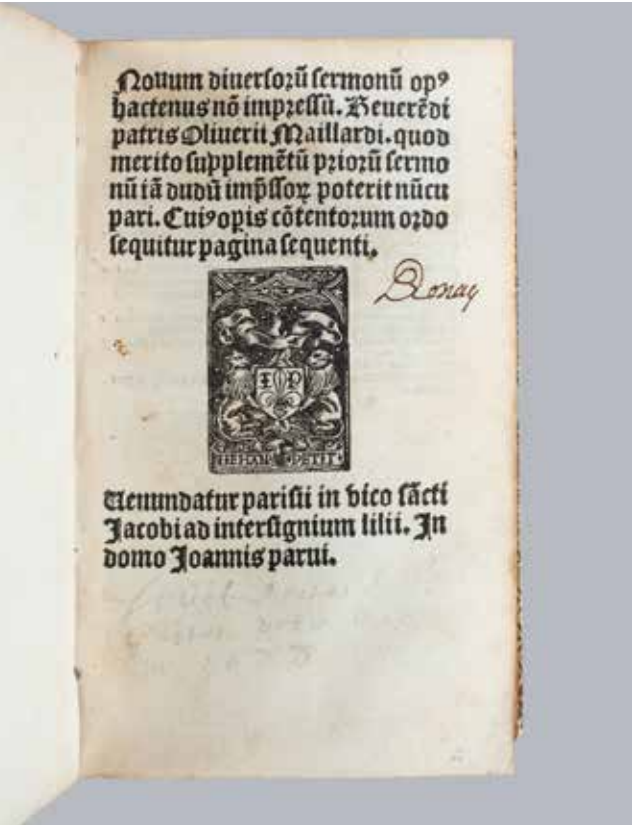 Nouum diuersorū sermonū opꝰ
hactenus nō impressū. Reuerēdi
patris Oliuerii Maillardi. quod
merito supplemētū priorū sermo
nū iā dudū imp̄ssoꝝ poterit nūcu
pari. Cuiꝰ opis cōtentorum ordo
sequitur pagina sequenti.
Donay
I P
IEHAN PETIT
Uenundatur parisii in vico sācti
Jacobi ad intersignium lilii. In
domo Joannis parui.